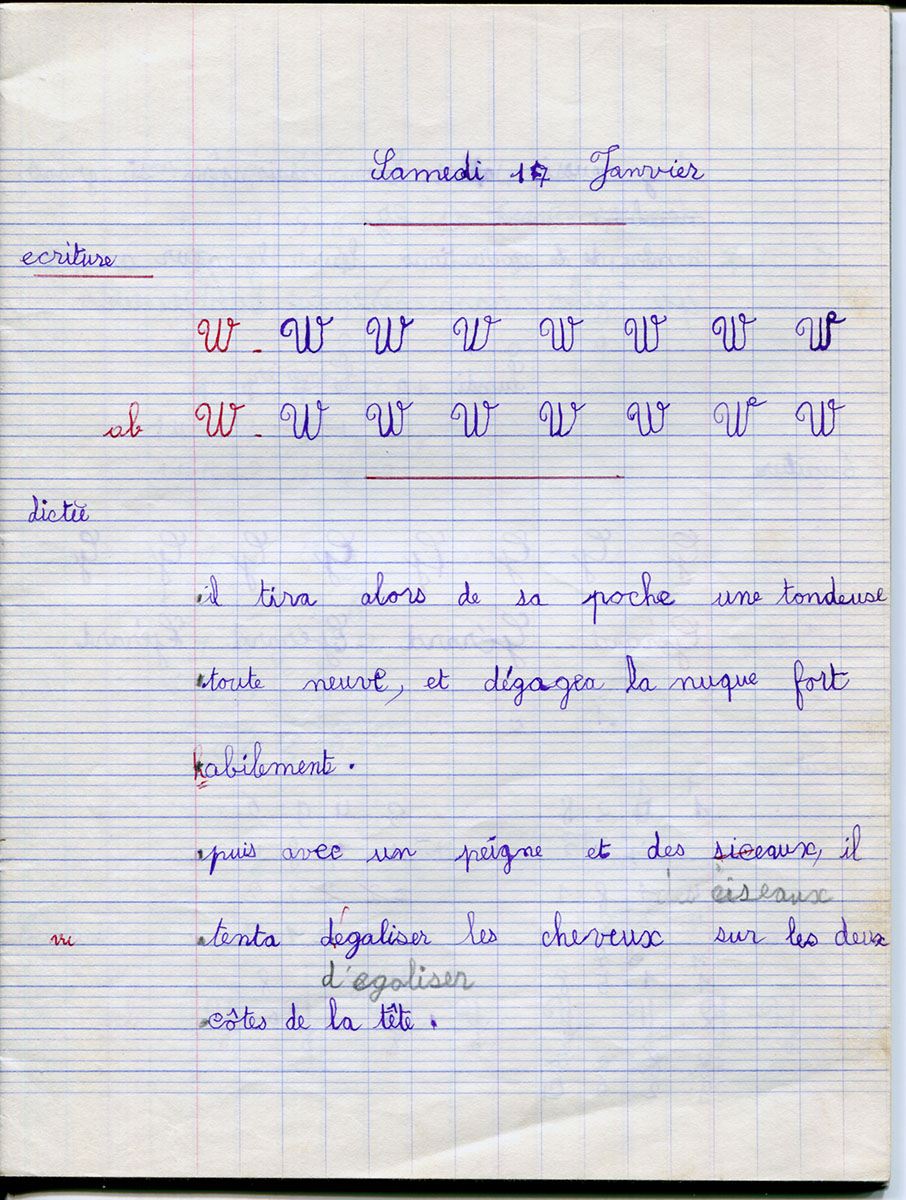 Samedi 17 Janvier
ecriture
W - W W W W W W W
ab W - W W W W W W W
dictée
il tira alors de sa poche une tondeuse
toute neuve, et dégagea la nuque fort
habilement.
puis avec un peigne et des siceaux, il
ciseaux
vu tenta dégaliser les cheveux sur les deux
d'egaliser
côtes de la tête.